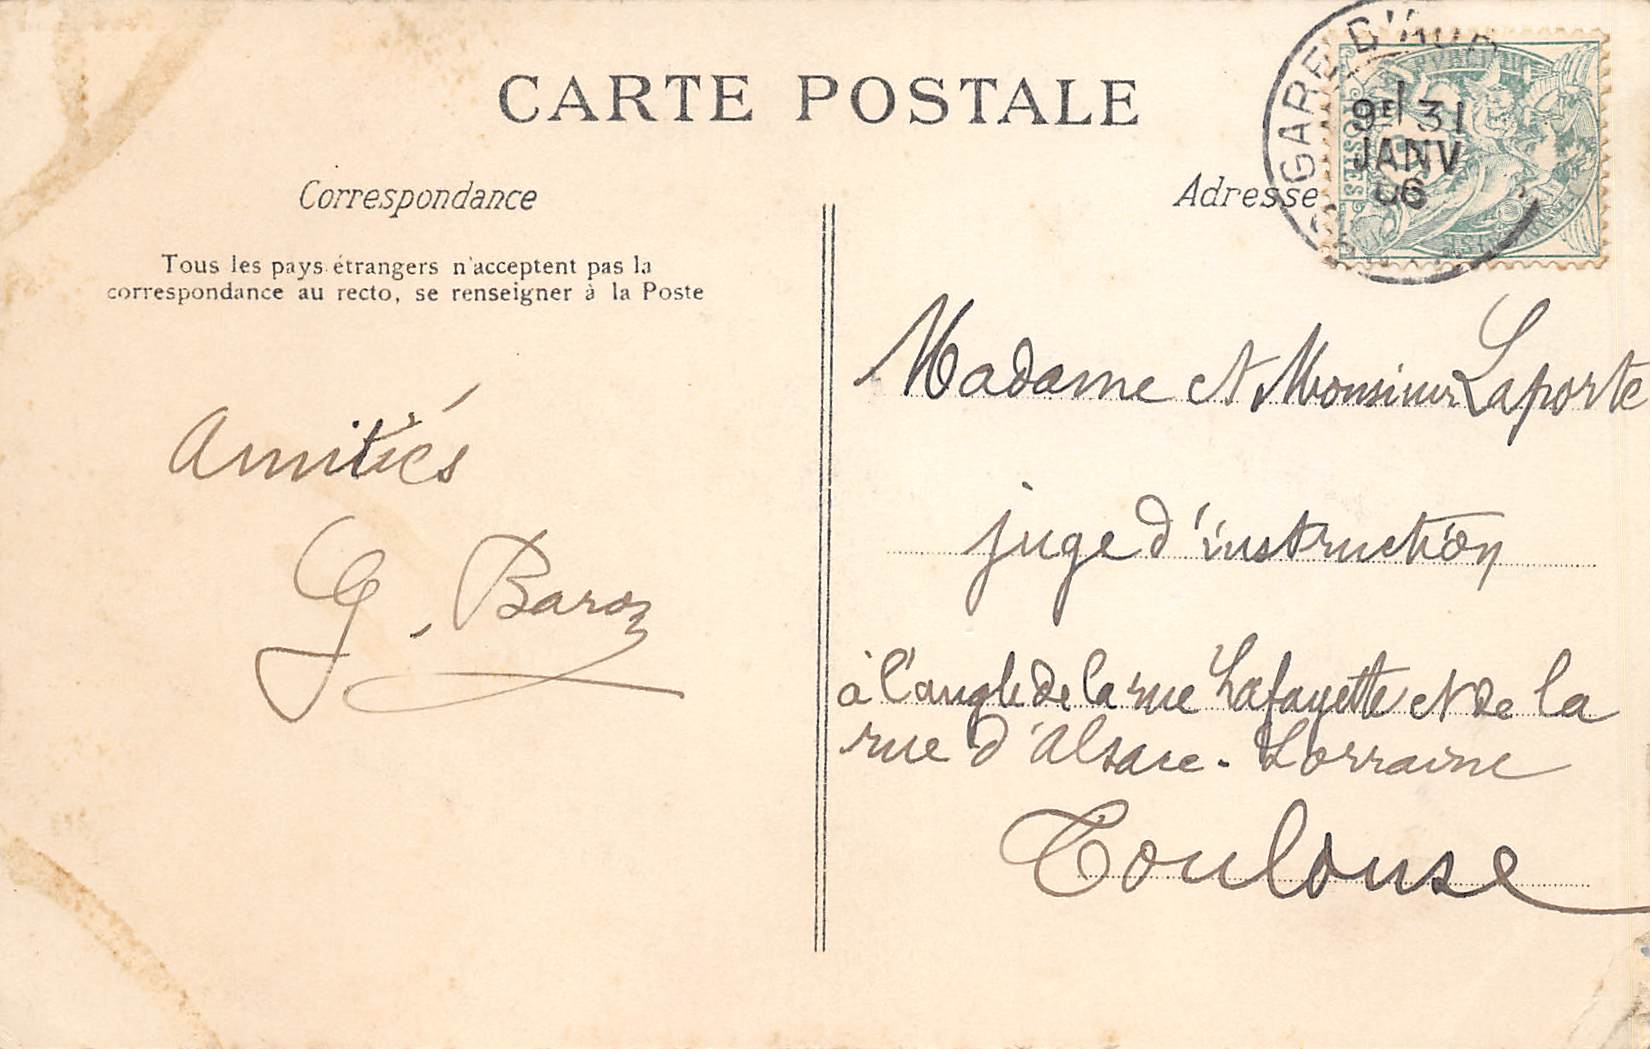 CARTE POSTALE
Correspondance
Tous les pays étrangers n'acceptent pas la
correspondance au recto, se renseigner à la Poste
Amitiés
G. Baroz
Adresse
GARE D'
9E 31
JANV
06
POSTES
Madame et Monsieur Laporte
juge d'instruction
à l'angle de la rue Lafayette et de la
rue d'Alsace-Lorraine
Toulouse